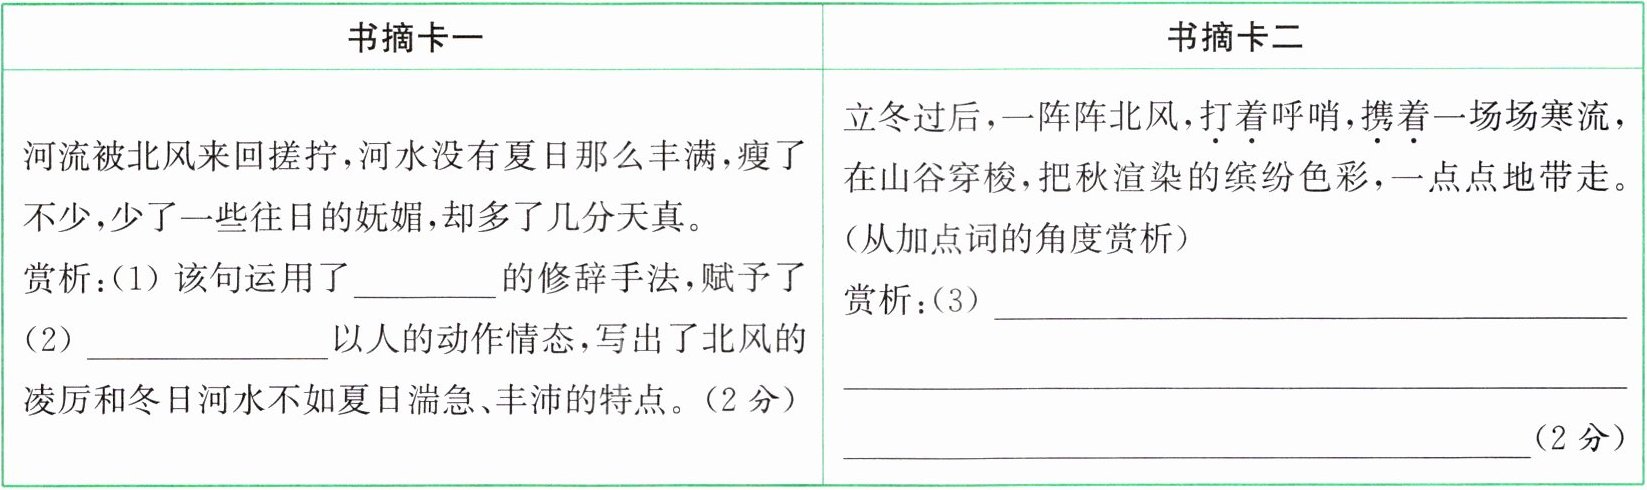 书摘卡一
河流被北风来回搓拧,河水没有夏日那么丰满,瘦了
不少,少了一些往日的妩媚,却多了几分天真。
赏析:(1) 该句运用了________的修辞手法,赋予了
(2) ______________以人的动作情态,写出了北风的
凌厉和冬日河水不如夏日湍急、丰沛的特点。(2 分)
书摘卡二
立冬过后,一阵阵北风,打着呼哨,携着一场场寒流,
在山谷穿梭,把秋渲染的缤纷色彩,一点点地带走。
(从加点词的角度赏析)
赏析:(3) ____________________________________
_____________________________________________
_______________________________________(2 分)